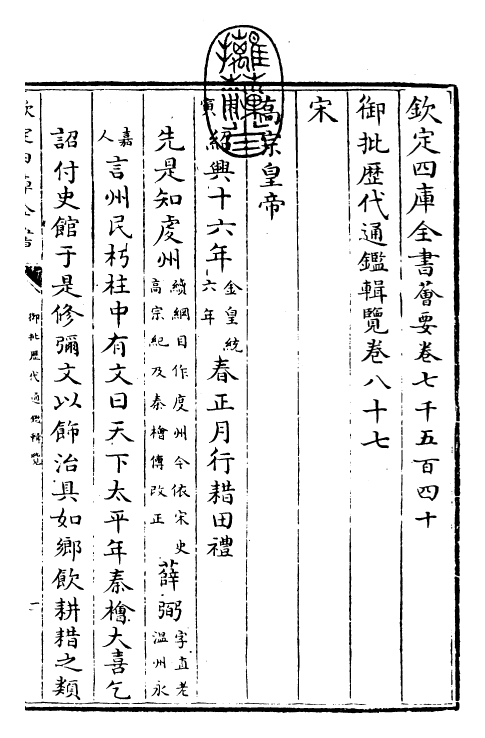 欽定四庫全書薈要卷七千五百四十
御批歴代通鑑輯覽卷八十七
宋
高宗皇帝
寅紹興十六年金皇統六年春正月行耤田禮
先是知虔州續綱目作度州今依宋史高宗紀及秦檜傳改正薛弼字直老温州永
嘉人言州民朽柱中有文曰天下太平年秦檜大喜乞
詔付史館于是修彌文以飾治具如鄉飲耕耤之類
欽定四庫全書
御批歴代通鑑輯覽
一